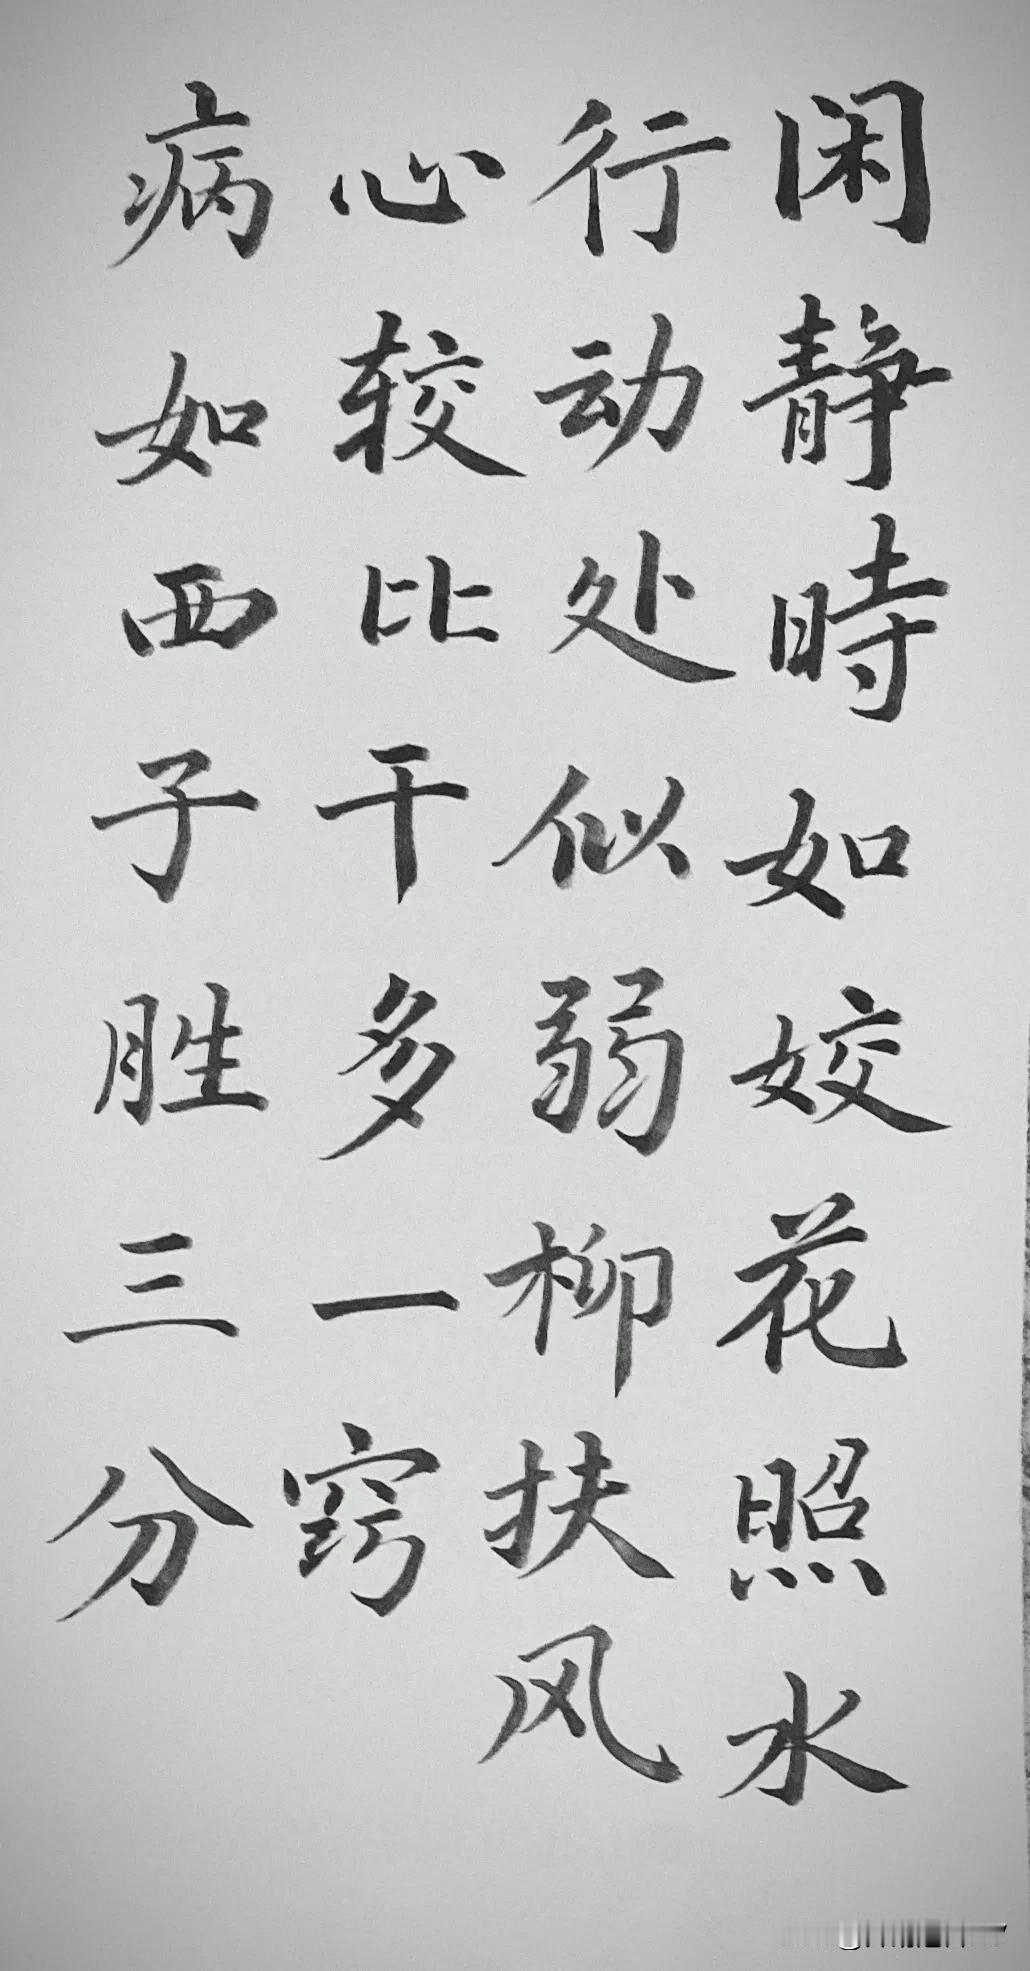 闲静時如姣花照水
行动处似弱柳扶风
心较比干多一窍
病如西子胜三分